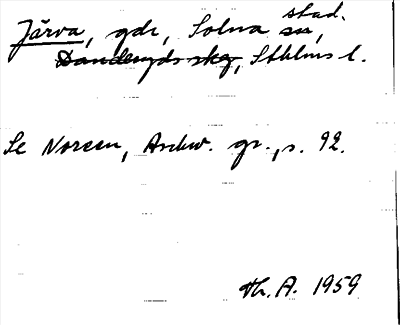 Järva, gde, Solna stad.
sn,
Danderyds skg, Sthlms l.
Se Noreen, Ark. gr., s. 92.
Th. A. 1959